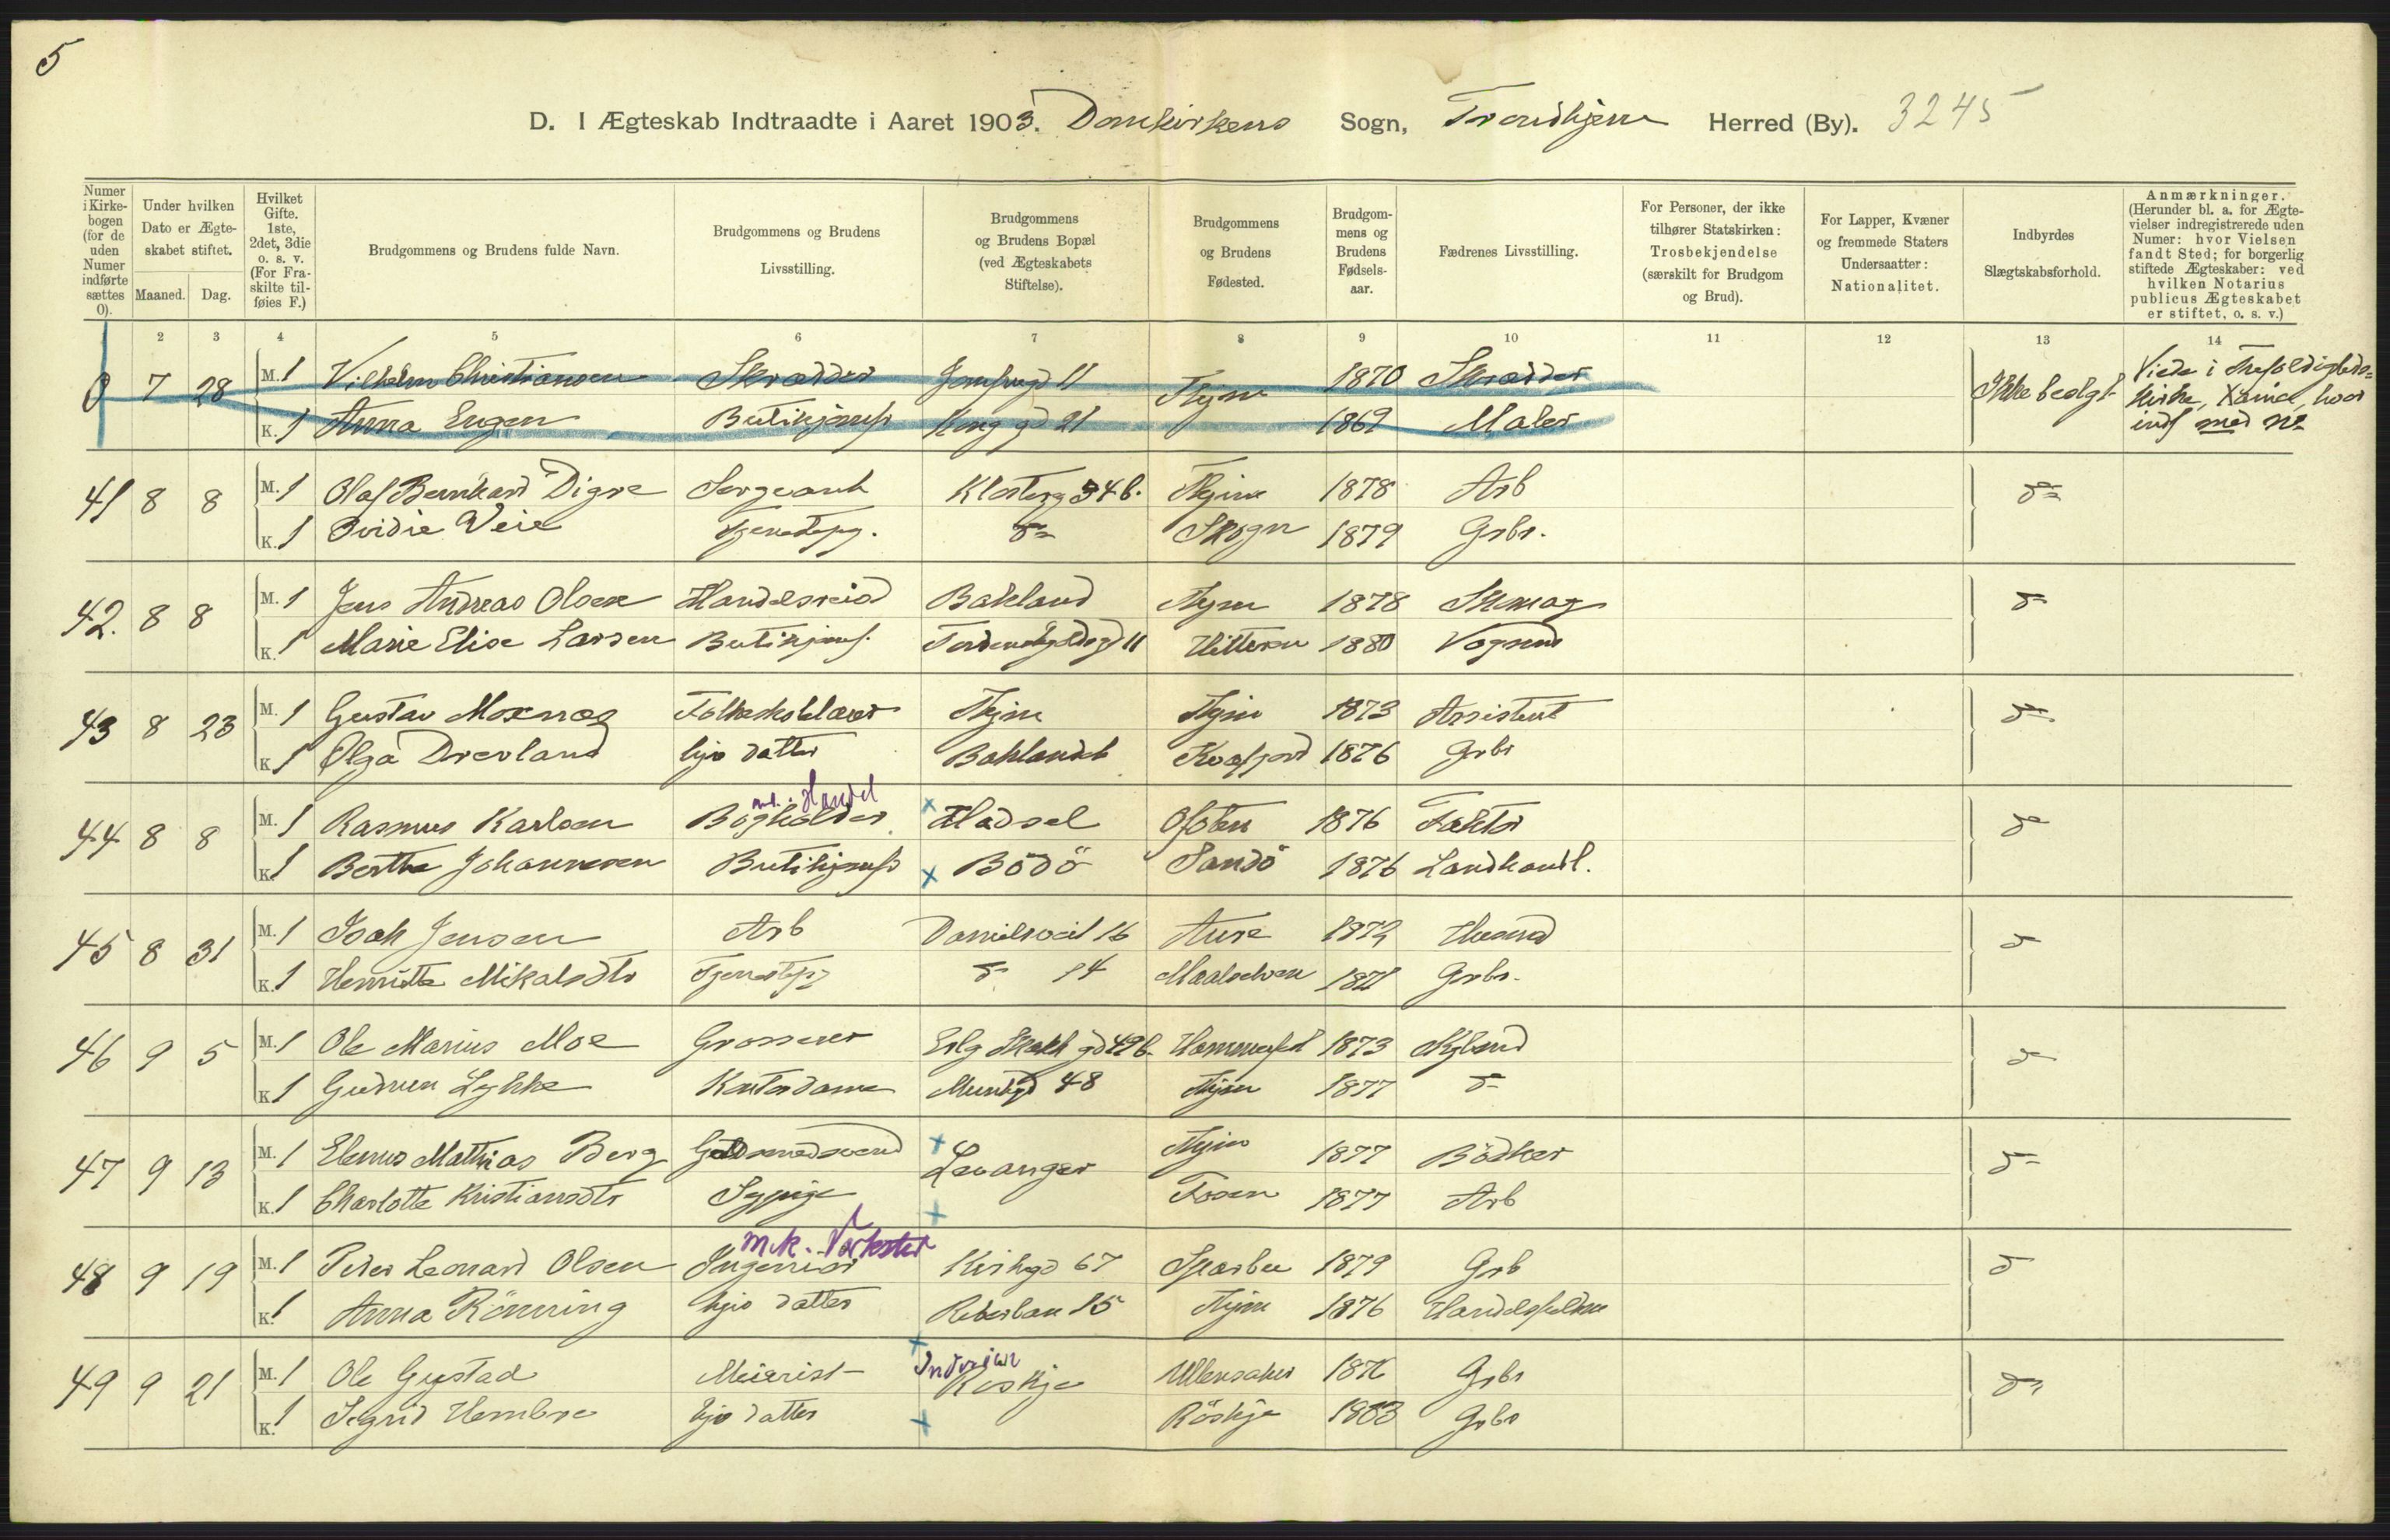 5
D. I Ægteskab Indtraadte i Aaret 1903. Domkirkens Sogn, Trondhjem Herred (By). 3245
Numer i Kirkebogen (for de uden Numer indførte sættes 0).
Under hvilken Dato er Ægteskabet stiftet.
Maaned. Dag.
Hvilket Gifte. 1ste, 2det, 3die o. s. v. (For Fraskilte tilføies F.)
Brudgommens og Brudens fulde Navn.
Brudgommens og Brudens Livsstilling.
Brudgommens og Brudens Bopæl (ved Ægteskabets Stiftelse).
Brudgommens og Brudens Fødested.
Brudgommens og Brudens Fødselsaar.
Fædrenes Livsstilling.
For Personer, der ikke tilhører Statskirken: Trosbekjendelse (særskilt for Brudgom og Brud).
For Lapper, Kvæner og fremmede Staters Undersaatter: Nationalitet.
Indbyrdes Slægtskabsforhold.
Anmærkninger. (Herunder bl. a. for Ægtevielser indregistrerede uden Numer: hvor Vielsen fandt Sted; for borgerlig stiftede Ægteskaber: ved hvilken Notarius publicus Ægteskabet er stiftet, o. s. v.)
2 3 4 5 6 7 8 9 10 11 12 13 14
0 7 28 M. 1 Vilhelm Christiansen Skrædder Jomfrugd 11 Thjem 1870 Skrædder Ikke beslgt Viede i Trefoldigheds=
K. 1 Anna Engen Butikjomfr Kong gd 21 1869 Maler kirke, Xania, hvor
indf med No
41 8 8 M. 1 Olaf Bernhard Digre Sergeant Klosterg 34 b. Thjem 1878 Arb do
K. 1 Ovidie Veie Tjenestepg. do Skogn 1879 Grbr.
42. 8 8 M. 1 Jens Andreas Olsen Handelsreisd Bakland Thjem 1878 Skomag do
K. 1 Marie Elise Larsen Butikjomf. Tordenskjoldsgd 11 Hitteren 1880 Vognmd
43 8 23 M. 1 Gustav Moxnæs Folkeskolelærer Thjem Thjem 1873 Assistent do
K. 1 Olga Drevland hjs datter Baklandet Kvæfjord 1876 Grbr
m. Handel
44 8 8 M. 1 Rasmus Karlsen Bogholder x Hadsel Ofoten 1876 Faktor do
K. 1 Berthe Johannesen Butikjomfr x Bodö Sandö 1876 Landhandl.
45 8 31 M. 1 Isak Jensen Arb Danielsveit 16 Aure 1872 Husmd do
K. 1 Henriette Mikalsdtr Tjenestepg do 14 Maalselven 1871 Grbr.
46 9 5 M. 1 Ole Marius Moe Grosserer Erlg Skakk gd 49 b. Hammerfest 1873 Kjbmd do
K. 1 Gudrun Lykke Kontordame Munkgd 48 Thjem 1877 do
47 9 13 M. 1 Elenus Mathias Berg Guldsmedsvend + Levanger Thjem 1877 Bödker do
K. 1 Charlotte Kristiansdtr Sypige + Fosen 1877 Arb
mk. Værksted
48 9 19 M. 1 Peder Leonard Olsen Ingeniør Kirkegd 67 Sparbu 1879 Grb do
K. 1 Anna Rönning hjs datter Reberban 15 Thjem 1876 Handelsfuldm
+ Inderøen
49 9 21 M. 1 Ole Gystad Meierist Röskje Ullensaker 1876 Grbr do
K. 1 Sigrid Hembre hjs datter + Röskje 1883 Grbr